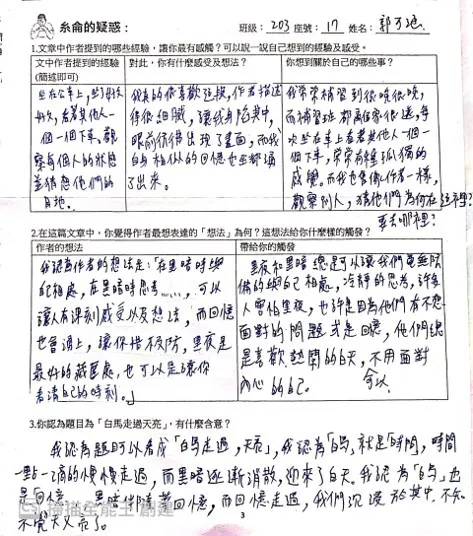 糸侖的疑惑：
班級：203 座號：17 姓名：
1.文章中作者提到的哪些經驗，讓你最有感觸？可以說一說自己想到的經驗及感受。
文中作者提到的經驗
(簡述即可)
坐在公車上，
看著其他人一
個一個下車，觀
察每個人的狀態
並猜想他們的
目地。
對此，你有什麼感受及想法？
我真的很喜歡這段，作者描述
得很細膩，讓我身陷其中，
眼前彷彿出現了畫面，而我
自身相似的回憶也全都湧
了出來。
你想到關於自己的哪些事？
我常常補習到很晚很晚，
而補習班都專車送，每
次坐在車上看著其他人一個一
個下車，常常有種孤獨的
感覺。而我也會像作者一樣，
觀察別人，猜他們為何在這裡？
要去哪裡？
2.在這篇文章中，你覺得作者最想表達的「想法」為何？這想法給你什麼樣的觸發？
作者的想法
我認為作者的想法是：「在黑暗時與
自己相處，在黑暗時思考……，可以
讓人有深刻感受以及想法，而回憶
也會湧上，讓你措不及防，黑夜是
最好的藏匿處，也可以是讓你
看清自己的時刻。」
帶給你的觸發
黑夜和黑暗總是可以讓我們毫無防
備的與自己相處，冷靜的思考，許多
人會怕黑夜，也許是因為他們有不想
面對的問題或是回憶，他們總
是喜歡熱鬧的白天，不用面對
內心的自己。
3.你認為題目為「白馬走過天亮」，有什麼含意？
我認為題目可以看成「白馬走過，天亮」，我認為「白馬」就是「時間」，時間
一點一滴的慢慢走過，而黑暗逐漸消散，迎來了白天。我認為「白馬」也
是「回憶」，黑暗伴隨著回憶，而回憶走過，我們沉浸於其中，不知
不覺天又亮了。
掃描全能王 創建
3